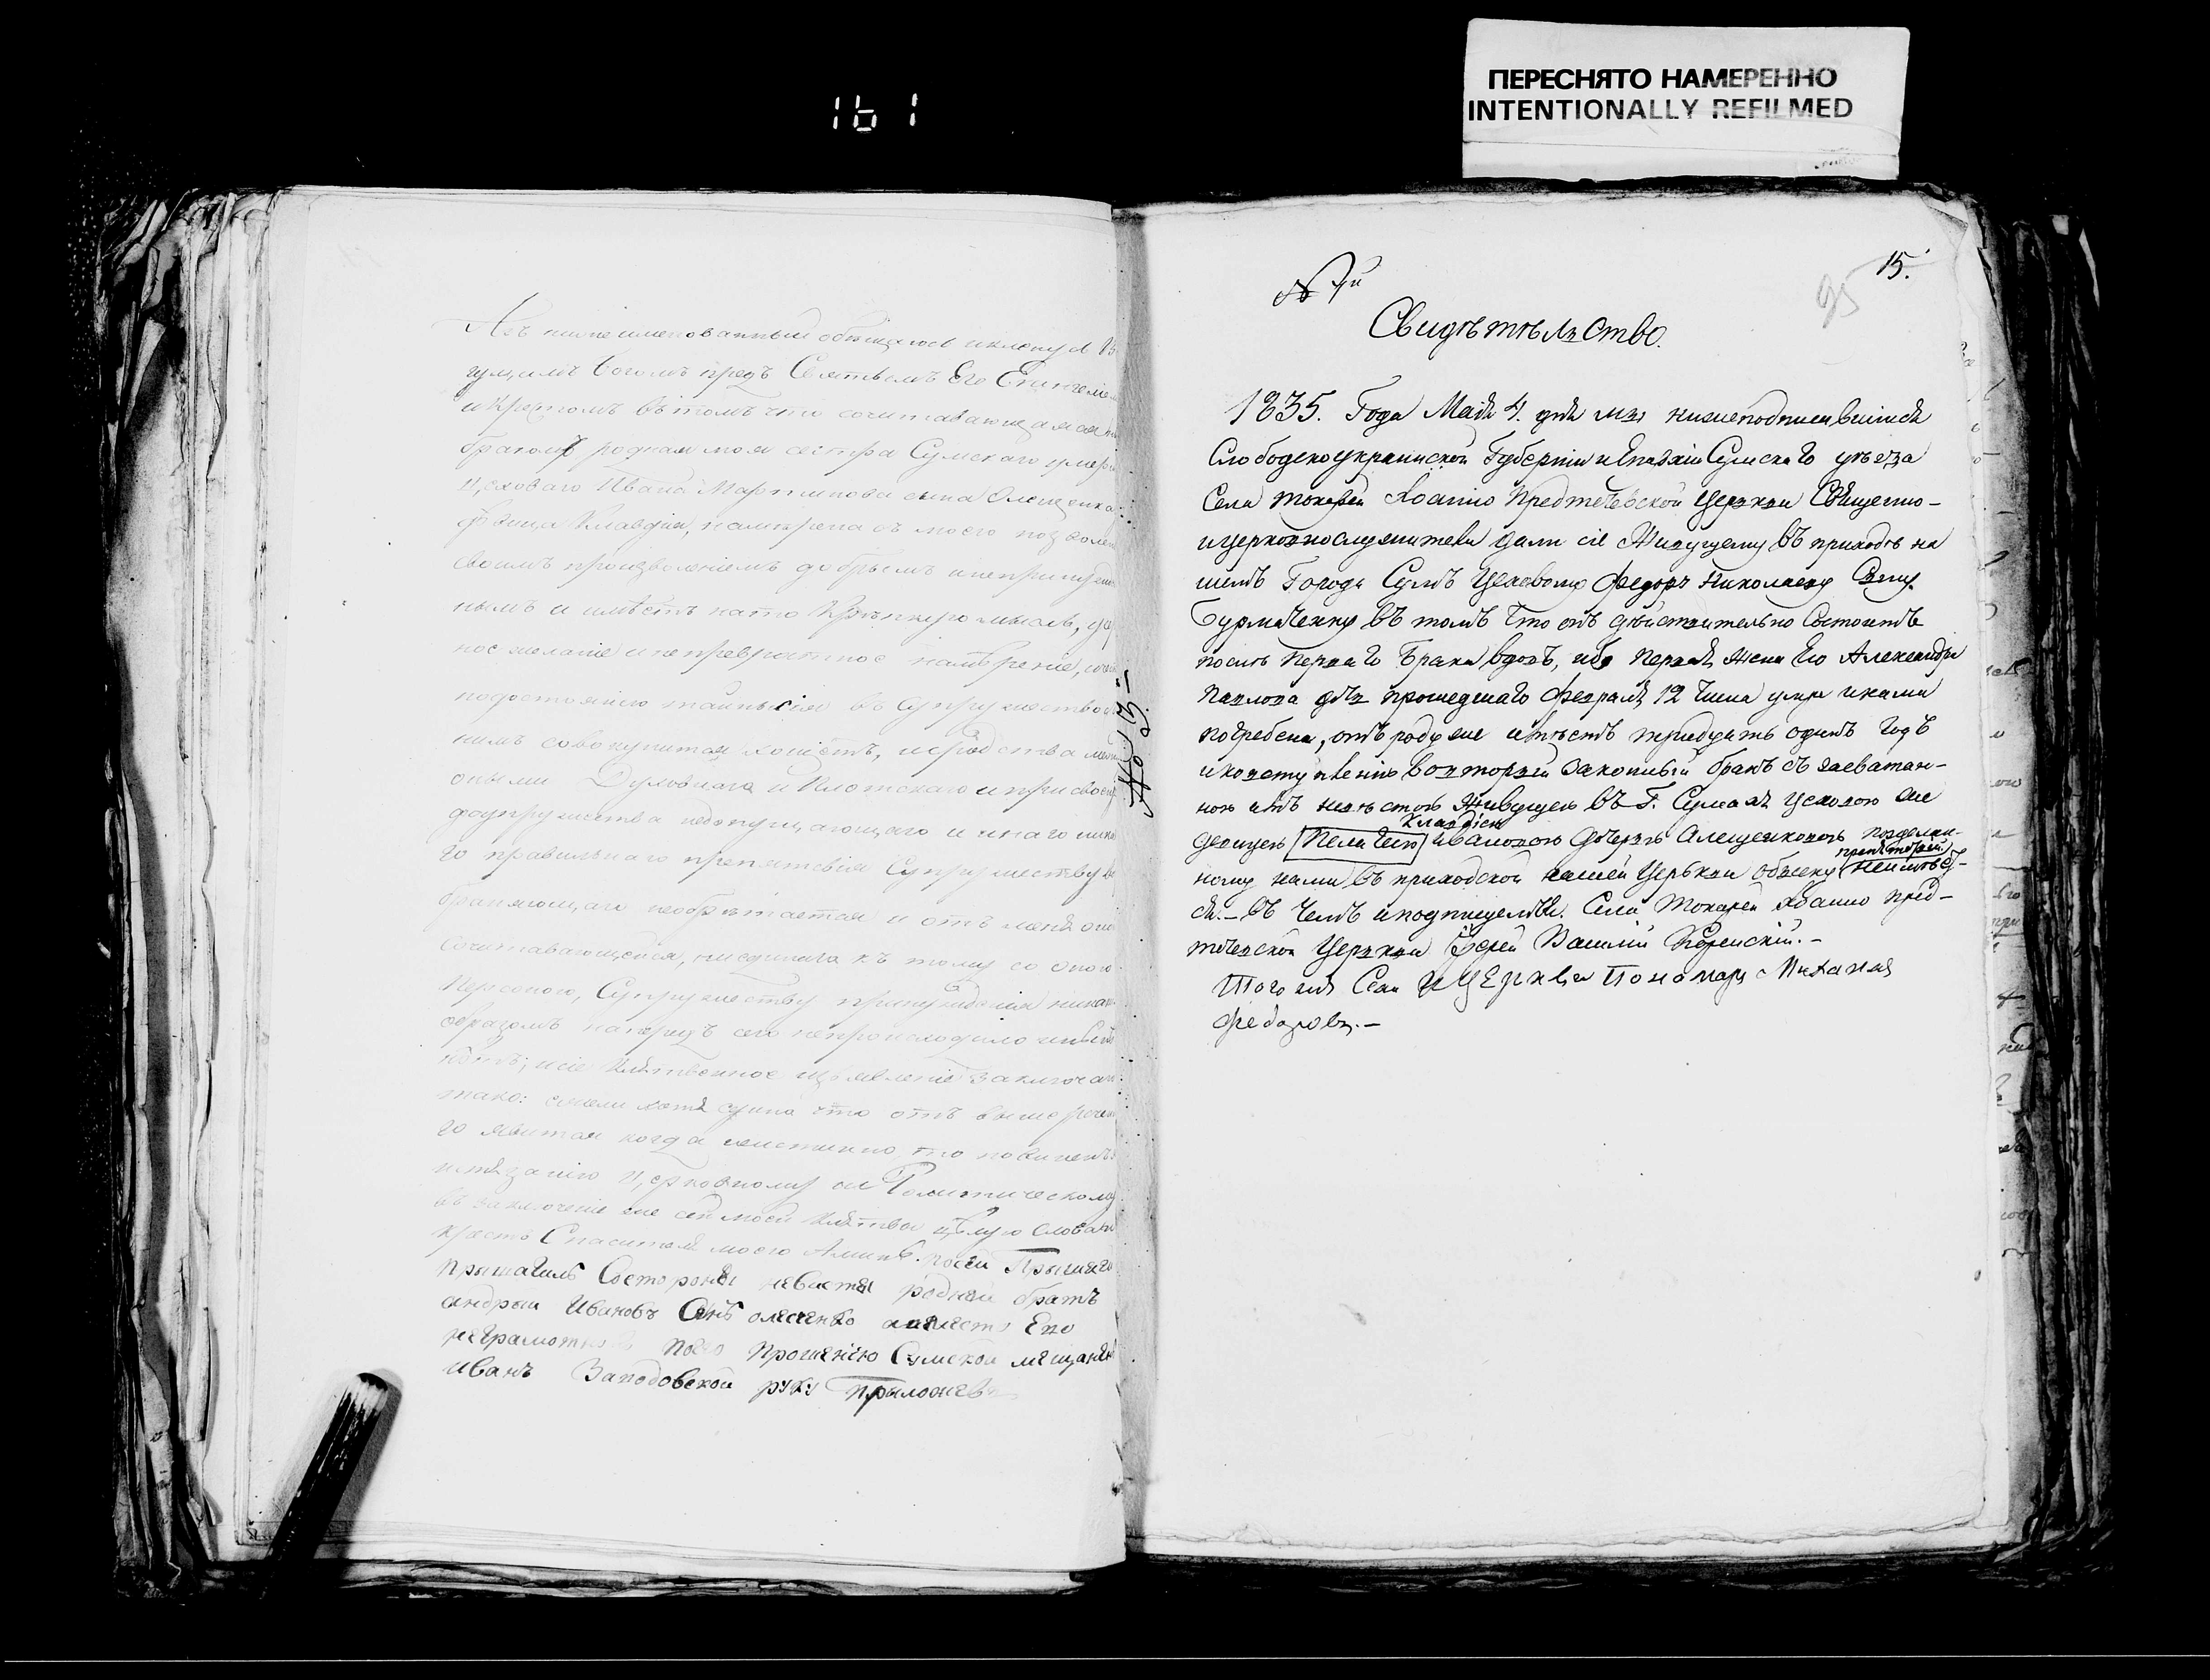 161
ПЕРЕСНЯТО НАМЕРЕННО
INTENTIONALLY REFILMED
Азъ нижеименованный обѣщаюсь и кленуся
Богомъ предъ Святымъ Его Евангелиемъ
и Крестомъ въ томъ что сочитавающаяся
бракомъ родная моя сестра Сумскаго
Цеховаго Ивана Мартинова сына Олещенка
дѣвица Клавдія, намѣрена съ моего
своимъ произволеніемъ добрымъ и непринужден
нымъ и имѣетъ на то крѣпкую мысль,
ное желаніе и непревратное намѣреніе,
въ супружество
нимъ совокупится хощетъ, и сродства
оными Духовнаго и Плотскаго и
супружества недопущающаго и инаго
го правильнаго препятствія Супружеству
необрѣтается и отъ меня
сочитавающейся, къ тому со оною
Персоною, Супружеству принужденія
образомъ напредъ сего непроисходило
нѣтъ; и сіе Клятвенное изъявленіе заключаю
тако: ежели хотя едина что отъ выше
го явится когда неистинно, то повиненъ
истязанію Церковному и Политическому
въ заключеніе же сей моей клятвы цѣлую слова и
крестъ Спасителя моего Аминь. Посей Прысяге
прысягилъ Состороны невесты родней братъ
андрѣй Ивановъ Сынъ олесенко Его
неграмотнаго Прошенію Сумской мещанинъ
Иванъ Заподовской руку Прыложевъ
№ 13.
15.
95
№ 7й
Свидѣтельство.
1835. Года Маія 4. дня мы нижеподписавшіися
Слободскоукраинской Губерніи и Епархіи Сумскаго уѣзда
Села токарей Іоанно Предтечевской Церкви Священно-
и церковнослужители дали сіе Живущему въ приходѣ на
шемъ Города Сумъ Цеховому Федору Николаеву Сыну
Бурмаченку въ томъ что онъ дѣйствительно Состоитъ
послѣ перваго брака вдовъ, ибо первая жена Его Александра
Павлова дчь прошедшаго февраля 12 числа умре и нами
погребена, отъ роду же имѣетъ тридцать одинъ годъ
и ко вступленію во вторый законный бракъ съ засватан-
ною имъ невѣстою Живущею въ Г. Сумахъ цеховою же
Клавдіею
девицею Пелагеею Ивановою дочерью Алещенковою по зделан-
препятствій
ному нами въ приходской нашей Церькви обыску неимѣет-
ся.- въ чемъ и подписуемся. Села Токарей Іоанно пред-
течевской Церькви Іерей Василій
Того жъ Села и Церкви Пономарь Михаилъ
Федоровъ.-